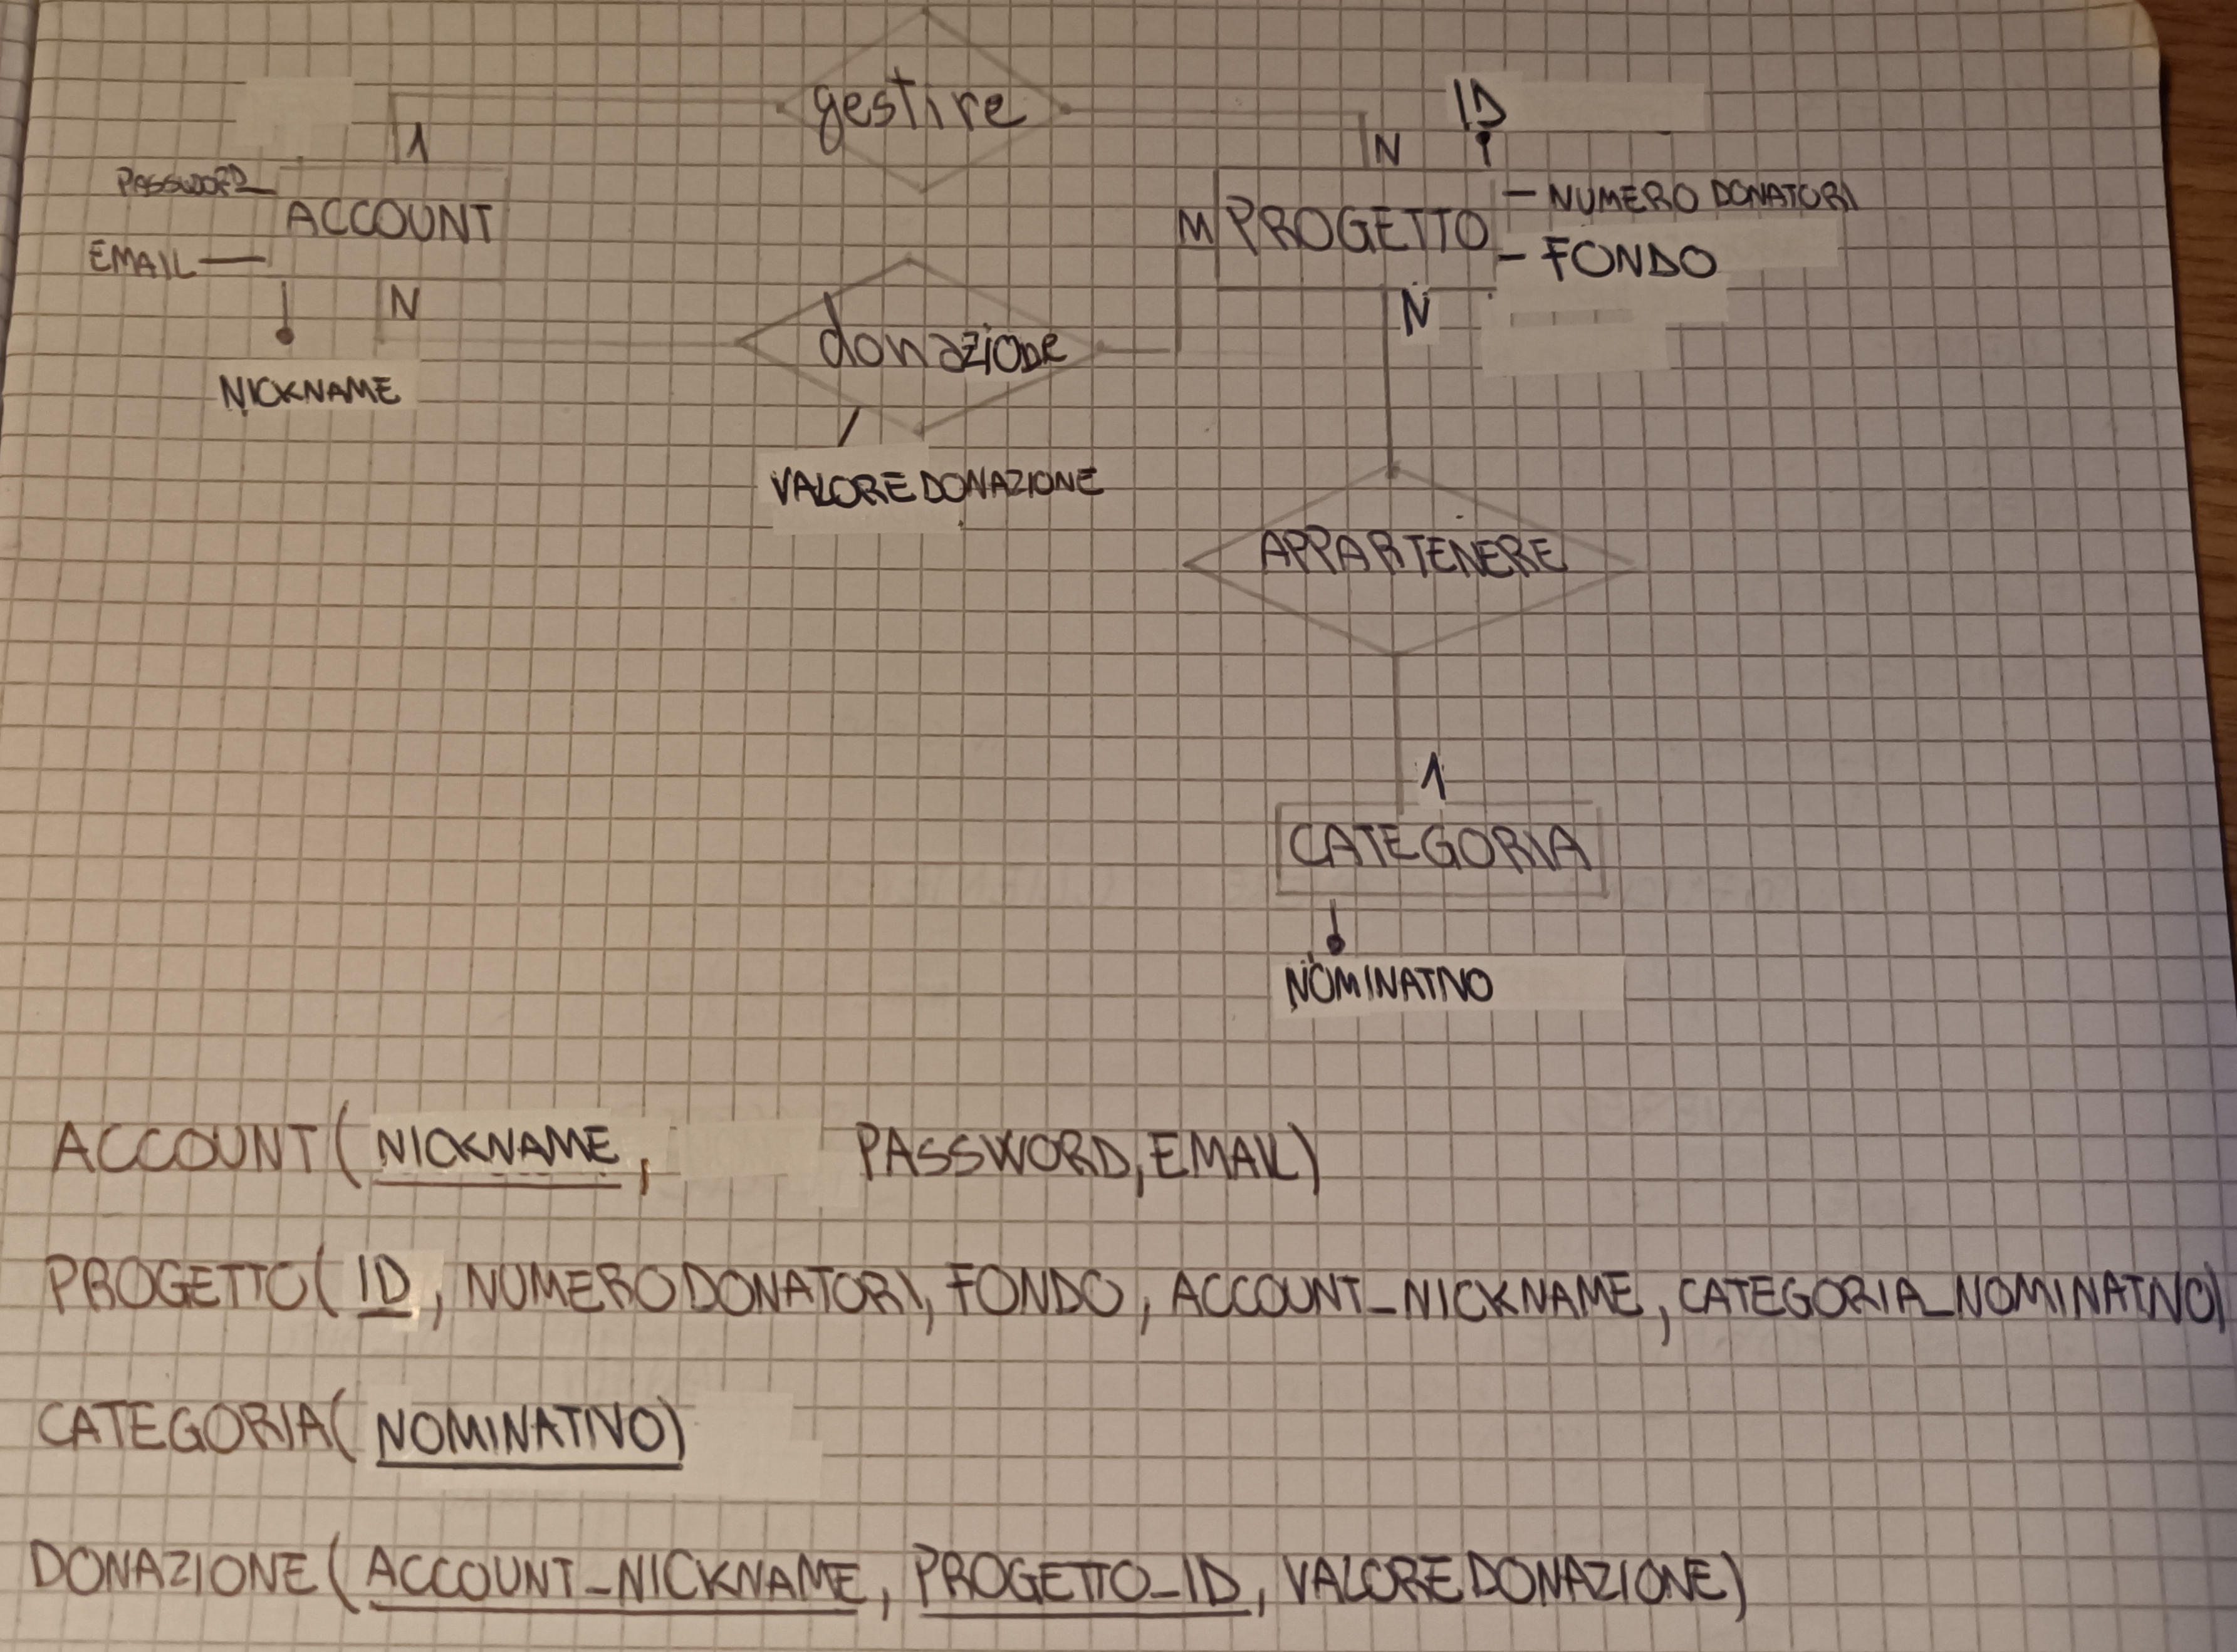 gestire
1
N
ID
PASSWORD
ACCOUNT
EMAIL
N
NICKNAME
M
PROGETTO
NUMERO DONATORI
FONDO
N
donazione
VALORE DONAZIONE
APPARTENERE
1
CATEGORIA
NOMINATIVO
ACCOUNT(NICKNAME, PASSWORD, EMAIL)
PROGETTO(ID, NUMERO DONATORI, FONDO, ACCOUNT_NICKNAME, CATEGORIA_NOMINATIVO)
CATEGORIA(NOMINATIVO)
DONAZIONE(ACCOUNT_NICKNAME, PROGETTO_ID, VALORE DONAZIONE)